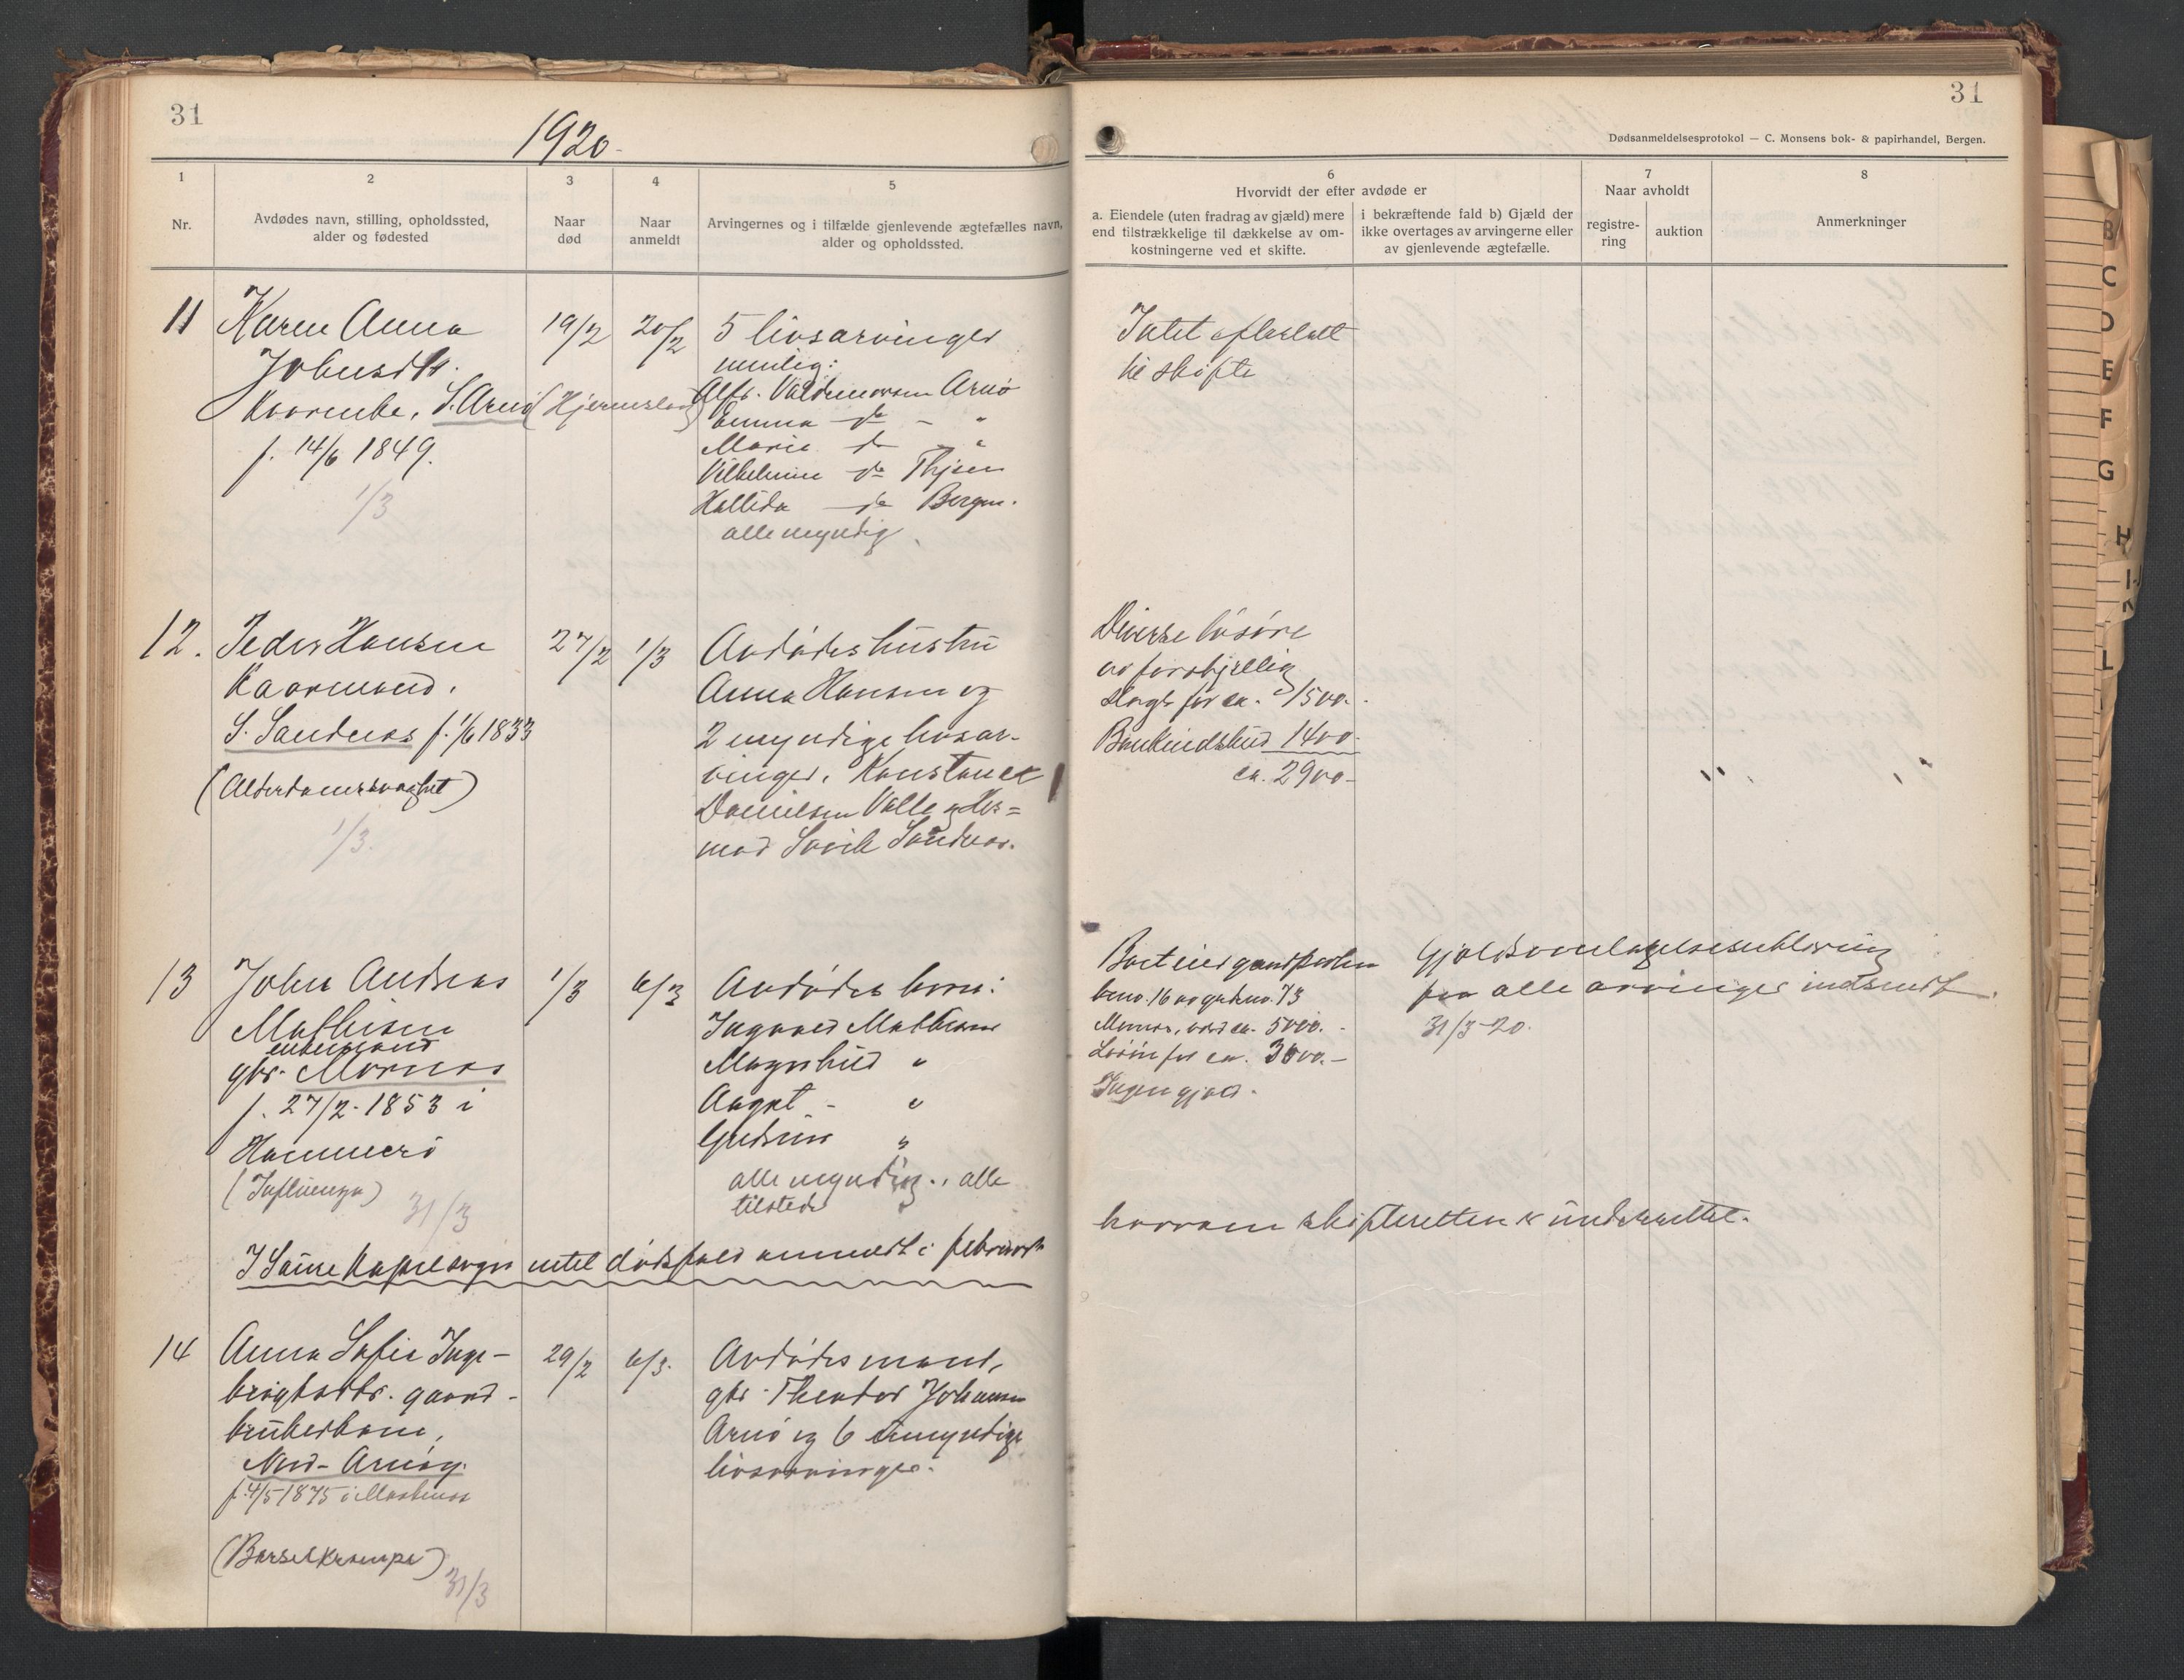 31
1920.
1
2
3
4
5
Nr.
Avdødes navn, stilling, opholdssted,
alder og fødested
Naar
død
Naar
anmeldt
Arvingernes og i tilfælde gjenlevende ægtefælles navn,
alder og opholdssted.
31
Dødsanmeldelsesprotokol — C. Monsens bok- & papirhandel, Bergen.
6
Hvorvidt der efter avdøde er
a. Eiendele (uten fradrag av gjæld) mere
end tilstrækkelige til dækkelse av om-
kostningerne ved et skifte.
i bekræftende fald b) Gjæld der
ikke overtages av arvingerne eller
av gjenlevende ægtefælle.
7
Naar avholdt
registre-
ring
auktion
8
Anmerkninger
11
Karen Anna
Johnsdtr.
S. Arnø (Hjerneslag)
f. 14/6 1849.
1/3
19/2
20/2
5 livsarvinger
nemlig:
Alfr. Valdemarsen Arnø
Emma do - "
Marie do - "
Vilhelmine do
do Bergen.
alle myndig
Intet efterlatt
til skifte
12.
Peder Hansen
Kaarmand.
S. Sandnes f. 1/6 1833
(Alderdomssvaghet)
1/3.
27/2
1/3
Avdødes hustru
Anna Hansen og
2 myndige livsar-
vinger, Konstance
Danielsen Valle og Her=
mod Sandnes.
Diverse løsøre
av forskjellig
slags for ca. 1500.-
Bankindskud 1400.-
ca. 2900.-
13
Johan Andreas
Mathisen
enkemand
gbr. Mornes
f. 27/2-1853 i
Hammerø
(Influenza)
31/3
1/3
6/3
Avdødes børn:
Ingvald Mathisen
Magnhild "
Aagot - "
Gudrun "
alle myndig, alle
tilstede
bno. 16 av gaardsno. 73
Mornes, værd ca. 5000.-
Løsøre for ca. 3000.-
Ingen gjæld.
Gjældsovertagelseserklæring
fra alle arvinger indsendt
31/3-20.
I kapelsogn intet dødsfald anmeldt i februar
hvorom skifteretten er underrettet.
14
Anna Sofie Inge-
brigtsdtr. gaard-
brukerkone,
Nord-Arnøy.
f. 4/5 1875 i
(Barselkrampe)
31/3
29/2
6/3.
Avdødes mand,
gbr. Theodor Johansen
Arnø og 6 umyndige
livsarvinger.
B
C
D
E
F
G
H
I-J
K
L